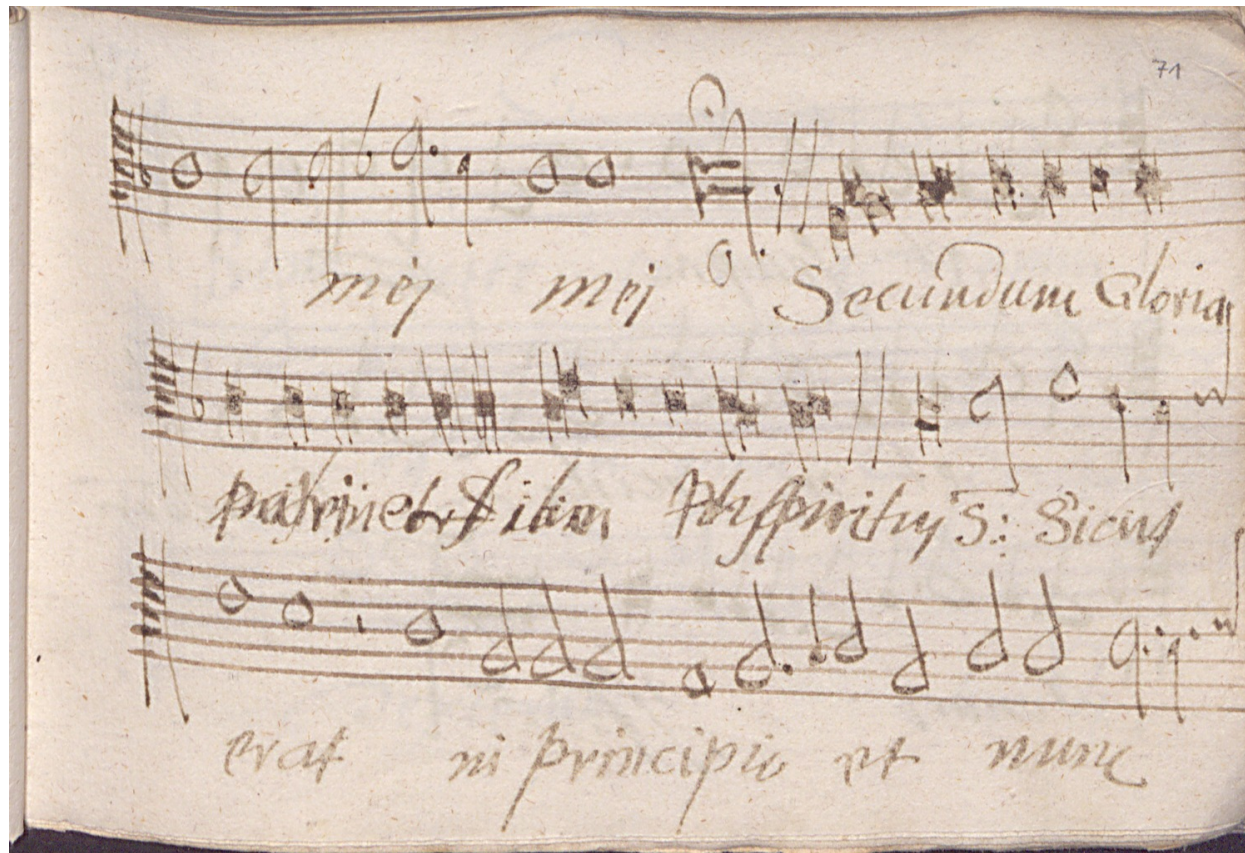 71
mej mej Secundum Gloria
patri et Filio spirituj S: Sicut
erat in principio et nunc